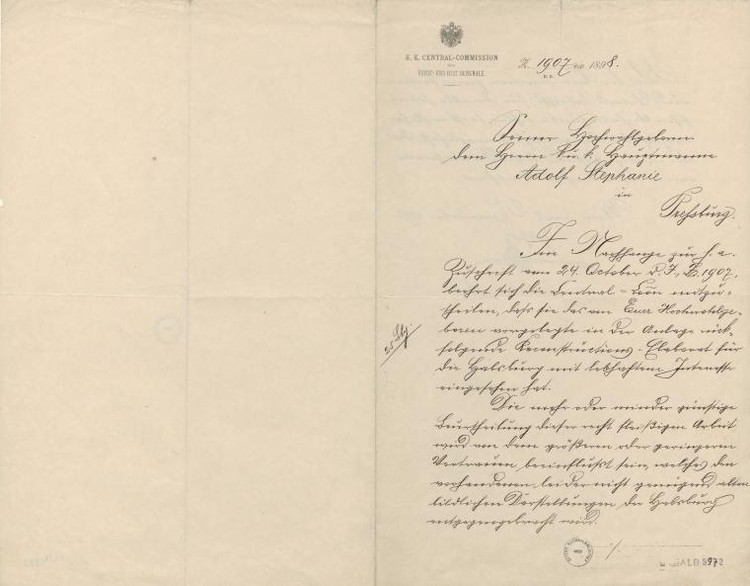 K. K. CENTRAL-COMMISSION
KUNST- UND HIST. DENKMALE.
Z. 1907 ex 1898.
Seiner Hochwohlgeboren
dem Herrn k. u. k. Hauptmanne
Adolf Stephanie
in
Preßburg.
Im Nachhange zur h. a.
Zuschrift vom 24. October d. J., Z. 1907,
beehrt sich die Central-Com̄ mitzu-
theilen, daß sie das von Euer Hochwohlge-
boren vorgelegte in der Anlage rück-
folgende Reconstructions-Elaborat für
die Habsburg mit lebhaftem Interesse
eingesehen hat.
Die mehr oder minder günstige
Beurtheilung dieser recht fleißigen Arbeit
wird von dem größeren oder geringeren
Vertrauen beeinflußt sein, welches den
vorhandenen, leider nicht genügend alten
bildlichen Darstellungen der Habsburg
entgegengebracht wird.
./.